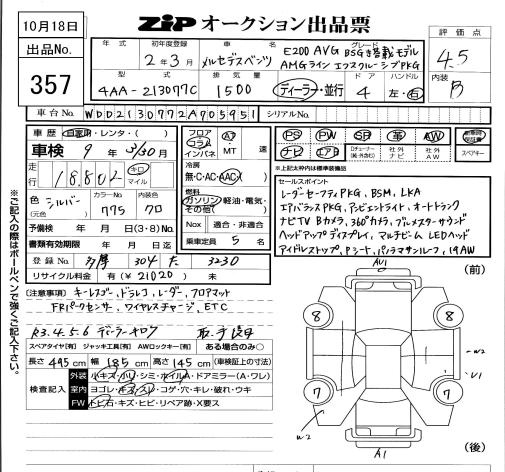 10月18日
ZIP オークション出品票
出品No. 357
評価点 4.5
内装 B
年式 初年度登録 2年3月
車名 メルセデスベンツ
グレード E200 AVG BSG搭載モデル
AMGライン エクスクルーシブPKG
型式 4AA-213077C
排気量 1500
ディーラー・並行
ドア 4
ハンドル 左・右
車台No. WDD2130772A905951
シリアルNo.
車歴 自家用・レンタ・( )
車検 9年3/30月
走行 18802 キロ マイル
色 シルバー (元色)
カラーNo. 775
内装色 クロ
予備検 年 月 日(3・8)No.
書類有効期限 年 月 日迄
登録No. 多摩 304 た 3230
リサイクル料金 有(¥21020) 未
フロア コラム インパネ
AT MT 速
冷房 無・C・AC・AAC( )
燃料 ガソリン・軽油・電気・その他( )
Nox 適合・非適合
乗車定員 5 名
PS PW SR 革 AW
ナビ エアB ロクューナー (純・外含む) 社外ナビ 社外AW
スペアキー
※上記太枠は標準装備品
セールスポイント
レーダーセーフティPKG, BSM, LKA
エアバランスPKG, アンビエントライト, オートトランク
ナビTV Bカメラ, 360°カメラ, ブルメスターサウンド
ヘッドアップディスプレイ, マルチビームLEDヘッド
アイドルストップ, Pシート, パノラマサンルーフ, 19AW
(注意事項) キーレスゴー, ドラレコ, レーダー, フロアマット
FRパークセンサー, ワイヤレスチャージ, ETC
R3.4.5.6 ディーラーキロク 取・才渡月
スペアタイヤ[有] ジャッキ工具[有] AWロックキー[有] ある場合のみ○
長さ 495cm 幅 185cm 高さ 145cm (車検証上の寸法)
検査記入
外装 小キズ・凹・シミ・ホイルA・ドアミラー(A・ワレ)
室内 ヨゴレ・キズ・スレ・コゲ・穴・キレ・破れ・ウキ
FW トビ石・キズ・ヒビ・リペア跡・X要ス
※ご記入の際はボールペンで強くご記入下さい。
(前)
AU1
8 8
W2
U1
7 7
W2
A1
(後)